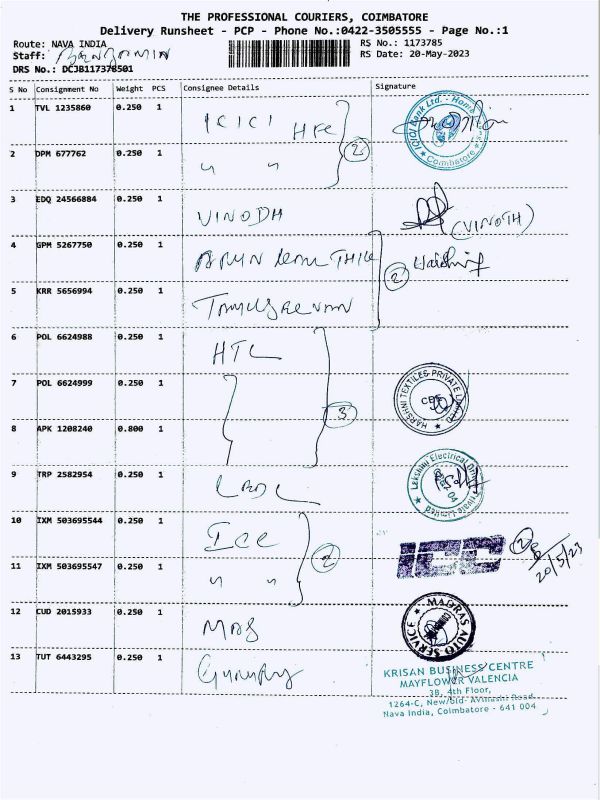 THE PROFESSIONAL COURIERS, COIMBATORE
Delivery Runsheet - PCP - Phone No.:0422-3505555 - Page No.:1
Route: NAVA INDIA
RS No.: 1173785
Staff: BENJAMIN
RS Date: 20-May-2023
DRS No.: DCJB117378501
S No Consignment No Weight PCS Consignee Details Signature
1 TVL 1235860 0.250 1 ICICI HFC
ICICI Bank Ltd. - Home
Coimbatore
2 DPM 677762 0.250 1 " "
2
3 EDQ 24566884 0.250 1 VINODH
(VINOTH)
4 GPM 5267750 0.250 1 ARUN
2
5 KRR 5656994 0.250 1
6 POL 6624988 0.250 1 HTL
7 POL 6624999 0.250 1
HARSHNI TEXTILES PRIVATE LIMITED
CBE
3
8 APK 1208240 0.800 1
9 TRP 2582954 0.250 1 LEDL
Lekshmi Electrical Drives Private Limited
10 IXM 503695544 0.250 1 ICC
2
ICC
2
20/5/23
11 IXM 503695547 0.250 1 " "
12 CUD 2015933 0.250 1 MAS
MADRAS AUTO SERVICE
13 TUT 6443295 0.250 1
KRISAN BUSINESS CENTRE
MAYFLOWER VALENCIA
3B, 4th Floor,
1264-C, New/Old- Avinashi Road
Nava India, Coimbatore - 641 004